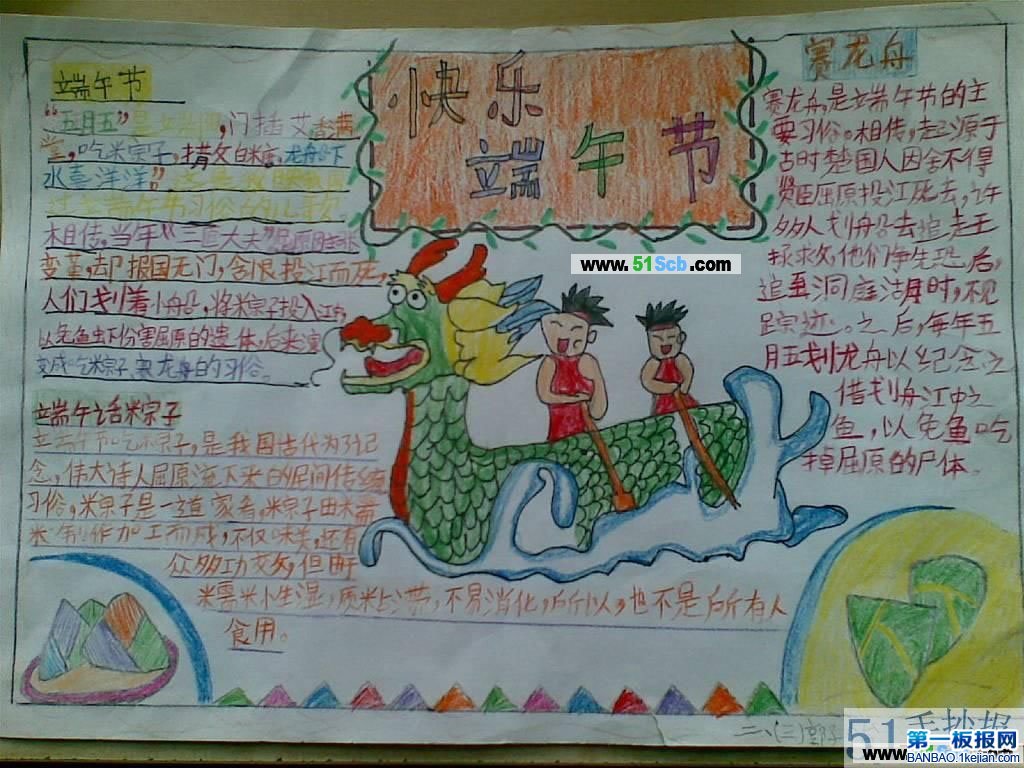 快乐
端午节
www.51Scb.com
端午节
"五月五"是 ,门插艾 香满
堂,吃粽子, 白糖,龙船下
水喜洋洋"
过 端午节习俗的儿歌
相传,当年"三闾大夫"屈原因主张
变革,却报国无门,含恨投江而死,
人们划着小船,将粽子投入江中,
以免鱼虾份害屈原的遗体,后来演
变成吃粽子,赛龙舟的习俗。
端午话粽子
端午节吃粽子,是我国古代为了记
念,伟大诗人屈原流下来的民间传统
习俗,粽子是一道 ,粽子由糯
米制作加工而成,不仅味美,还有
众多功 ,但
米 小生湿,质粘 带,不易消化,所以,也不是所有人
食用。
赛龙舟
赛龙舟,是端午节的主
要习俗。相传,起源于
古时楚国人因舍不得
贤臣屈原投江死去,许
多人划船去追赶
拯求,他们争先恐后,
追至洞庭湖时,不见
踪迹。之后,每年五
月五划龙舟以纪念之
借划舟江中之
鱼,以免鱼吃
掉屈原的尸体。
三、(三)
51手抄报
第一板报网
www.
BANBAO.1kejian.com